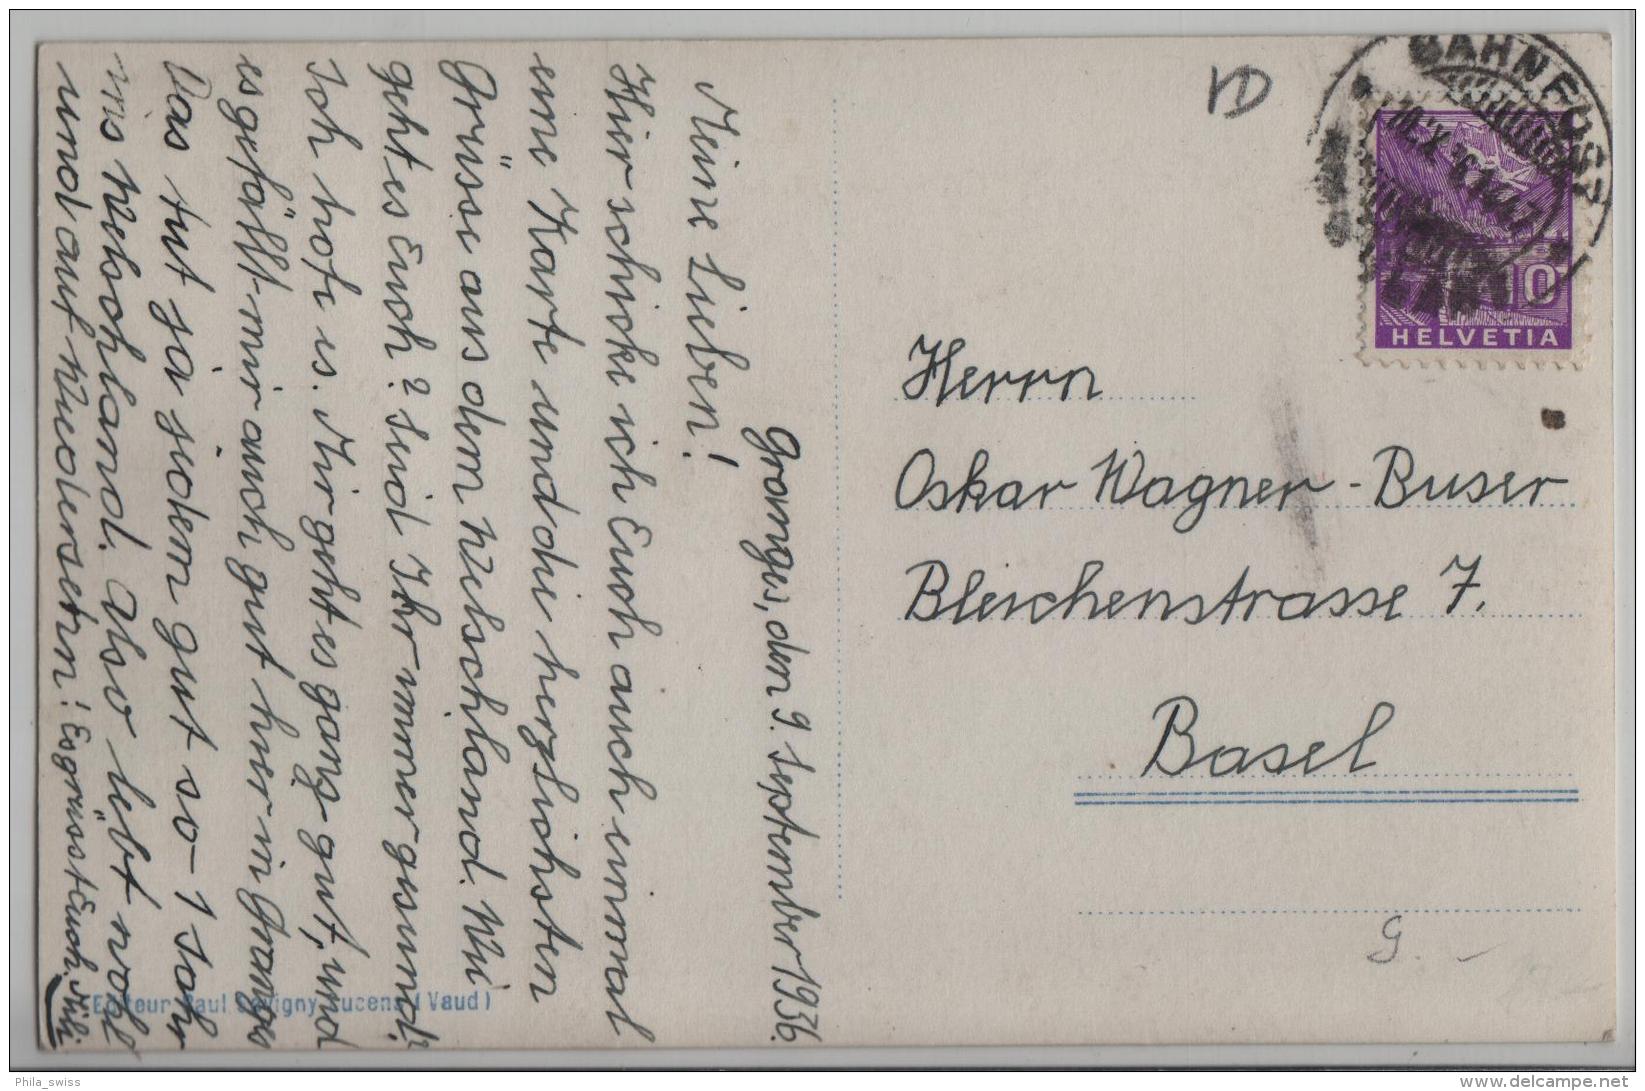 Granges, den 9. September 1936.
Meine Lieben!
Hier schicke ich Euch auch einmal
eine Karte und die herzlichsten
Grüsse aus dem Welschland. Wie
geht es Euch? Seid Ihr immer gesund?
Ich hoffe es. Mir geht es ganz gut, und
es gefällt mir auch gut hier in Granges
Das tut ja jedem gut so 1 Jahr
ins Welschland. Also lebt wohl
und auf Wiedersehen! Es grüsst Euch.
Editeur Paul Savigny Lucens (Vaud)
VD
BAHNPOST
10
HELVETIA
Herrn
Oskar Wagner-Buser
Bleichenstrasse 7.
Basel
G. -
Phila_swiss
delcampe.net